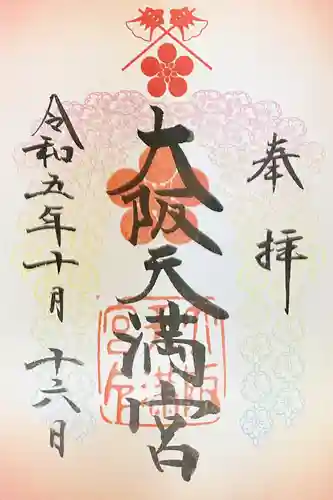 奉拝
大阪天満宮
令和五年十月十六日